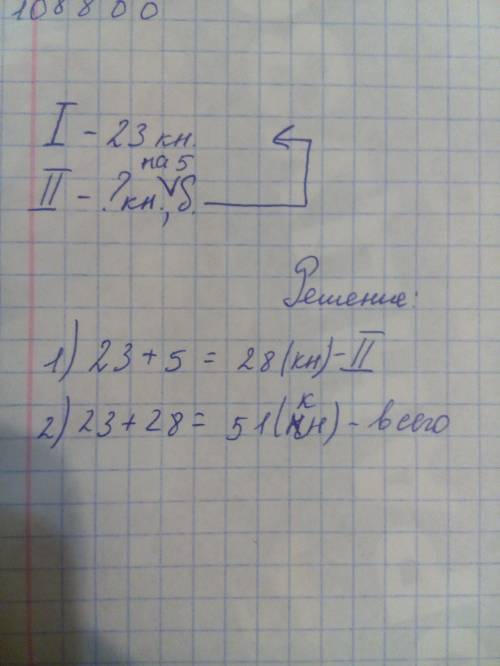 108800
I - 23 кн.
на 5
II - ? кн., б.
Решение:
1) 23 + 5 = 28 (кн) - II
к
2) 23 + 28 = 51 (кн) - всего